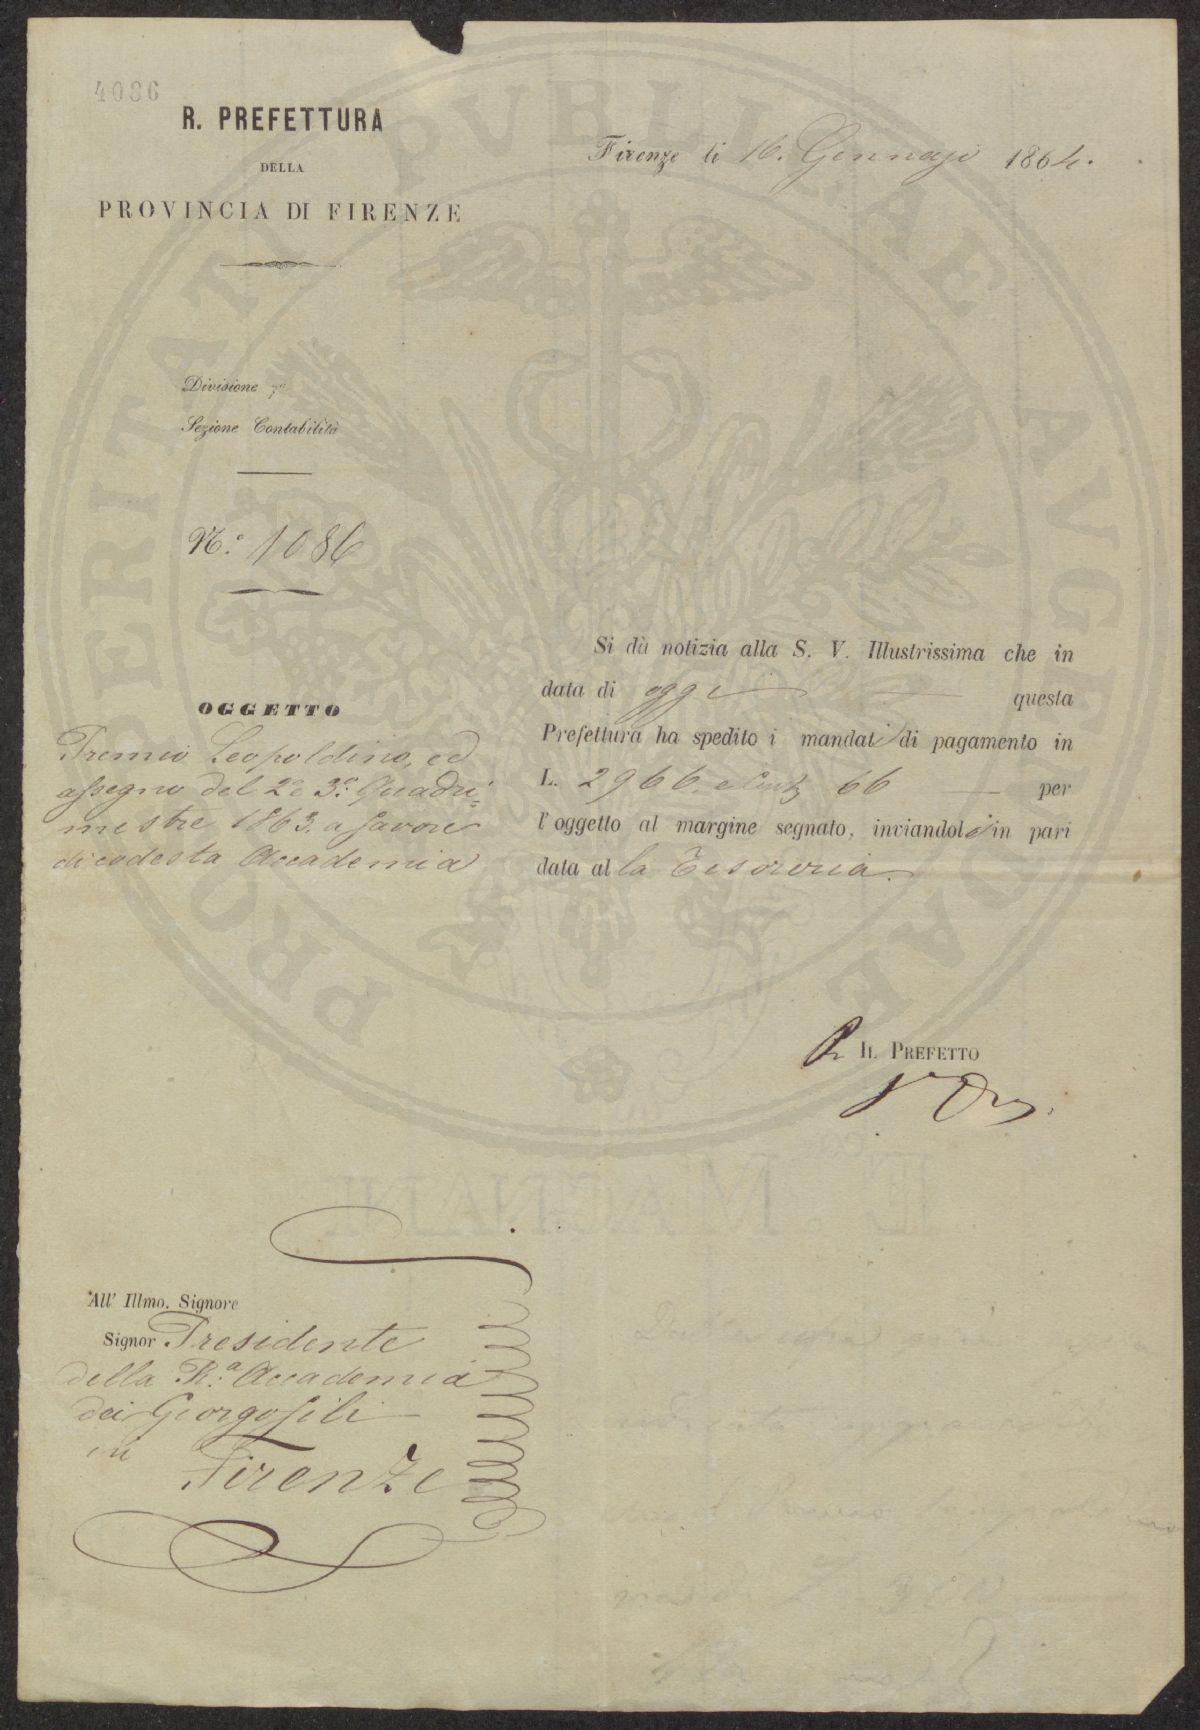 4086
R. PREFETTURA
DELLA
PROVINCIA DI FIRENZE
Firenze li 16. Gennajo 1864.
Divisione 7a
Sezione Contabilità
N.° 1086
OGGETTO
Premio Leopoldino, ed
assegno del 2° e 3.° Quadri=
mestre 1863. a favore
di codesta Accademia
Si dà notizia alla S. V. Illustrissima che in
data di oggi questa
Prefettura ha spedito i mandati di pagamento in
L. 2966. e Cent. 66 per
l'oggetto al margine segnato, inviandoli in pari
data alla Tesoreria.
Pr IL PREFETTO
All' Illmo. Signore
Signor Presidente
della R.a Accademia
dei Georgofili
in
Firenze
PROSPERITATI PVBLICAE AVGENDAE
E MAGNANI